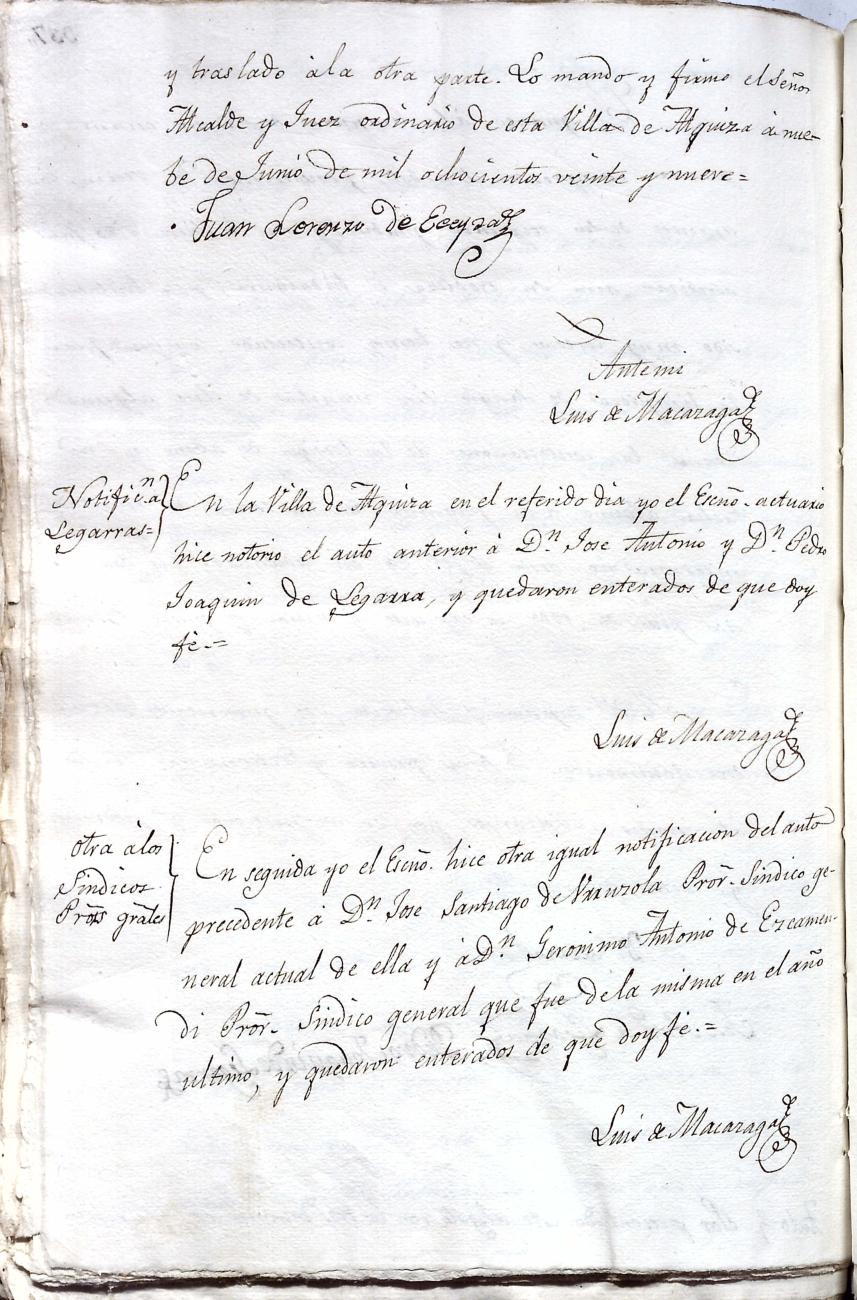 y traslado àla otra parte. Lo mando y firmo el Señor
Alcalde y Juez ordinario de esta Villa de Alquiza à nue-
be de Junio de mil ochocientos veinte y nueve=
Juan Lorenzo de Eceyza
Antemi
Luis de Macazaga
Notific.n a
Legarras=
En la Villa de Alquiza en el referido dia yo el Esnõ. actuario
hice notorio el auto anterior à D.n Jose Antonio y D.n Pedro
Joaquin de Legarra, y quedaron enterados de que doy
fè.=
Luis de Macazaga
otra àlos
Sindicos
Prors grãles
En seguida yo el Esnõ. hice otra igual notificacion del auto
precedente à D.n Jose Santiago de Urruzola Prõr. Sindico ge-
neral actual de ella y àD.n Geronimo Antonio de Ezcamen-
di Prõr. Sindico general que fue dela misma en el año
ultimo, y quedaron enterados de que doy fè.=
Luis de Macazaga